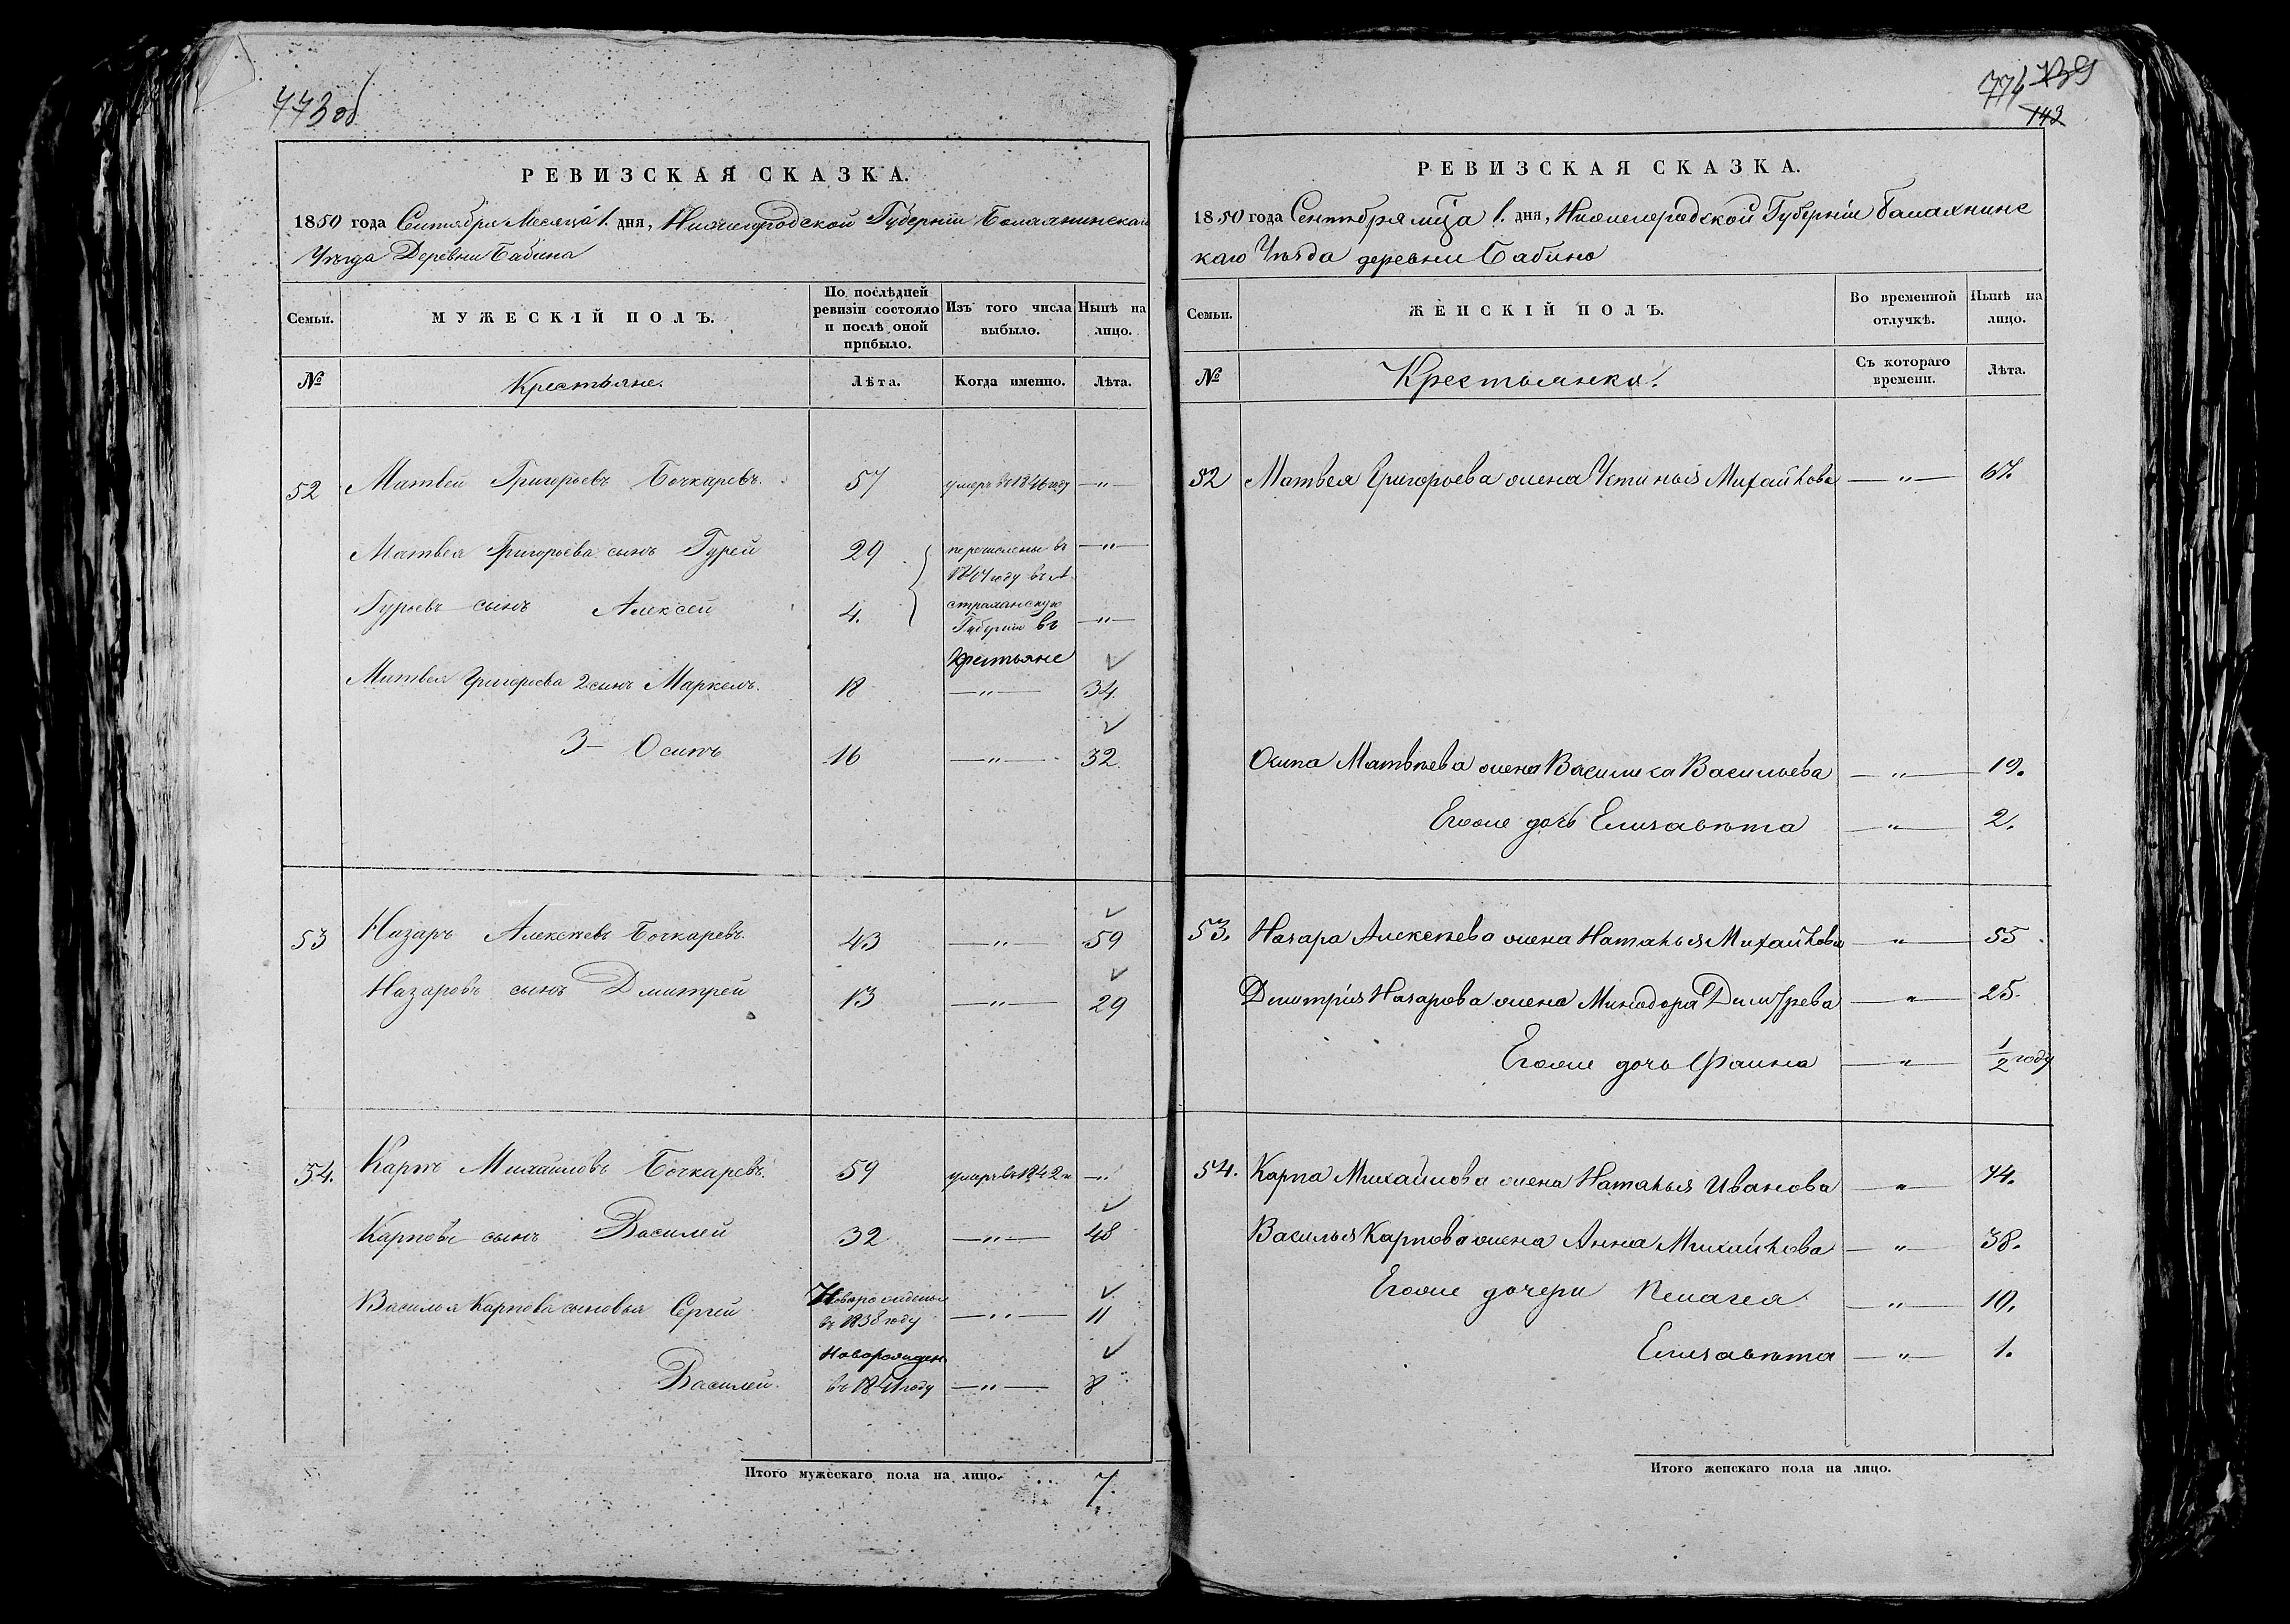 773 об
РЕВИЗСКАЯ СКАЗКА.
1850 года Сентября Месяца 1. дня, Нижегородской Губерніи Балахнинскаго
Уѣзда Деревни Бабина
Семьи.
МУЖЕСКІЙ ПОЛЪ.
По послѣдней ревизіи состояло и послѣ оной прибыло.
Изъ того числа выбыло.
Нынѣ на лицо.
№
Крестьяне.
Лѣта.
Когда именно.
Лѣта.
52 Матвей Григорьевъ Бочкаревъ. 57 умеръ въ 1846 году —"—
Матвея Григорьева сынъ Гурей 29 перечислены въ —"—
году въ А
Гурьевъ сынъ Алексей 4. страханскую
Губернию въ —"—
Крестьяне
Матвея Григорьева 2 сынъ Маркелъ. 18 —"— 34.
3 — Осипъ 16 —"— 32.
53 Назаръ Алексѣевъ Бочкаревъ. 43 —"— 59
Назаровъ сынъ Дмитрей 13 —"— 29
54. Карпъ Михайловъ Бочкаревъ. 59 умеръ въ 1842 —"
Карповъ сынъ Василей 32 —"— 48
Василья Карпова сыновья Сергей Новорожденъ
въ 1838 году —"— 11
Новорожден.
Василей. въ 1841 году —"— 8
Итого мужескаго пола на лицо. 7.
774 139
143
РЕВИЗСКАЯ СКАЗКА.
1850 года Сентября мца 1. дня, Нижегородской Губерніи балахнинс
каго Уѣзда деревни Бабино
Семьи.
ЖЕНСКІЙ ПОЛЪ.
Во временной отлучкѣ.
Нынѣ на лицо.
№
Крестьянки.
Съ котораго времени.
Лѣта.
52 Матвея Григорьева жена Устинья Михайлова —"— 67.
Осипа Матвѣева жена Василиса Васильева —"— 19.
Егоже дочь Елизавѣта —"— 2.
53. Назара Алексѣева жена Наталья Михайлова —"— 55.
Дмитрія Назарова жена Минодора Дмитрева —"— 25.
Егоже дочь Фаина —"— 1/2 году
54. Карпа Михайлова жена Наталья Иванова —"— 74.
Василья Карпова жена Анна Михайлова —"— 38.
Егоже дочери Пелагея —"— 10.
Елизавѣта —"— 1.
Итого женскаго пола на лицо.